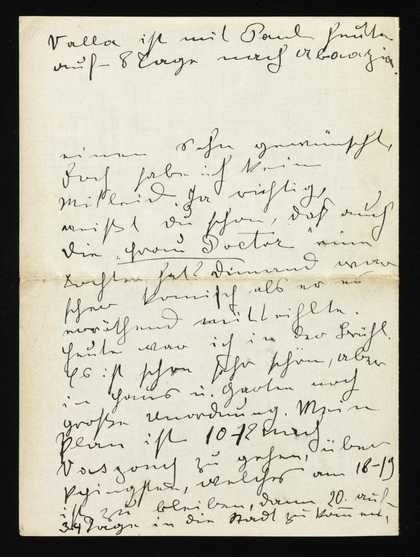 Valla ist mit Paul heute
auf 8 Tage nach Abbazia.
einen Sohn gewünscht,
Doch habe ich kein
Mitleid. Ja richtig,
weißt du schon, daß auch
die „Frau Doctor" eine
Tochter hat? war
schon komisch als er es
erröthend mittheilte.
Heute war ich in der Brühl.
Es ist schon sehr schön, aber
in Haus u. Garten noch
große Unordnung. Mein
Plan ist 10-12 nach
zu gehen, über
Pfingsten, welches am 18-19
ist zu bleiben, dann 20. auf
3-4 Tage in die Stadt zu kommen,